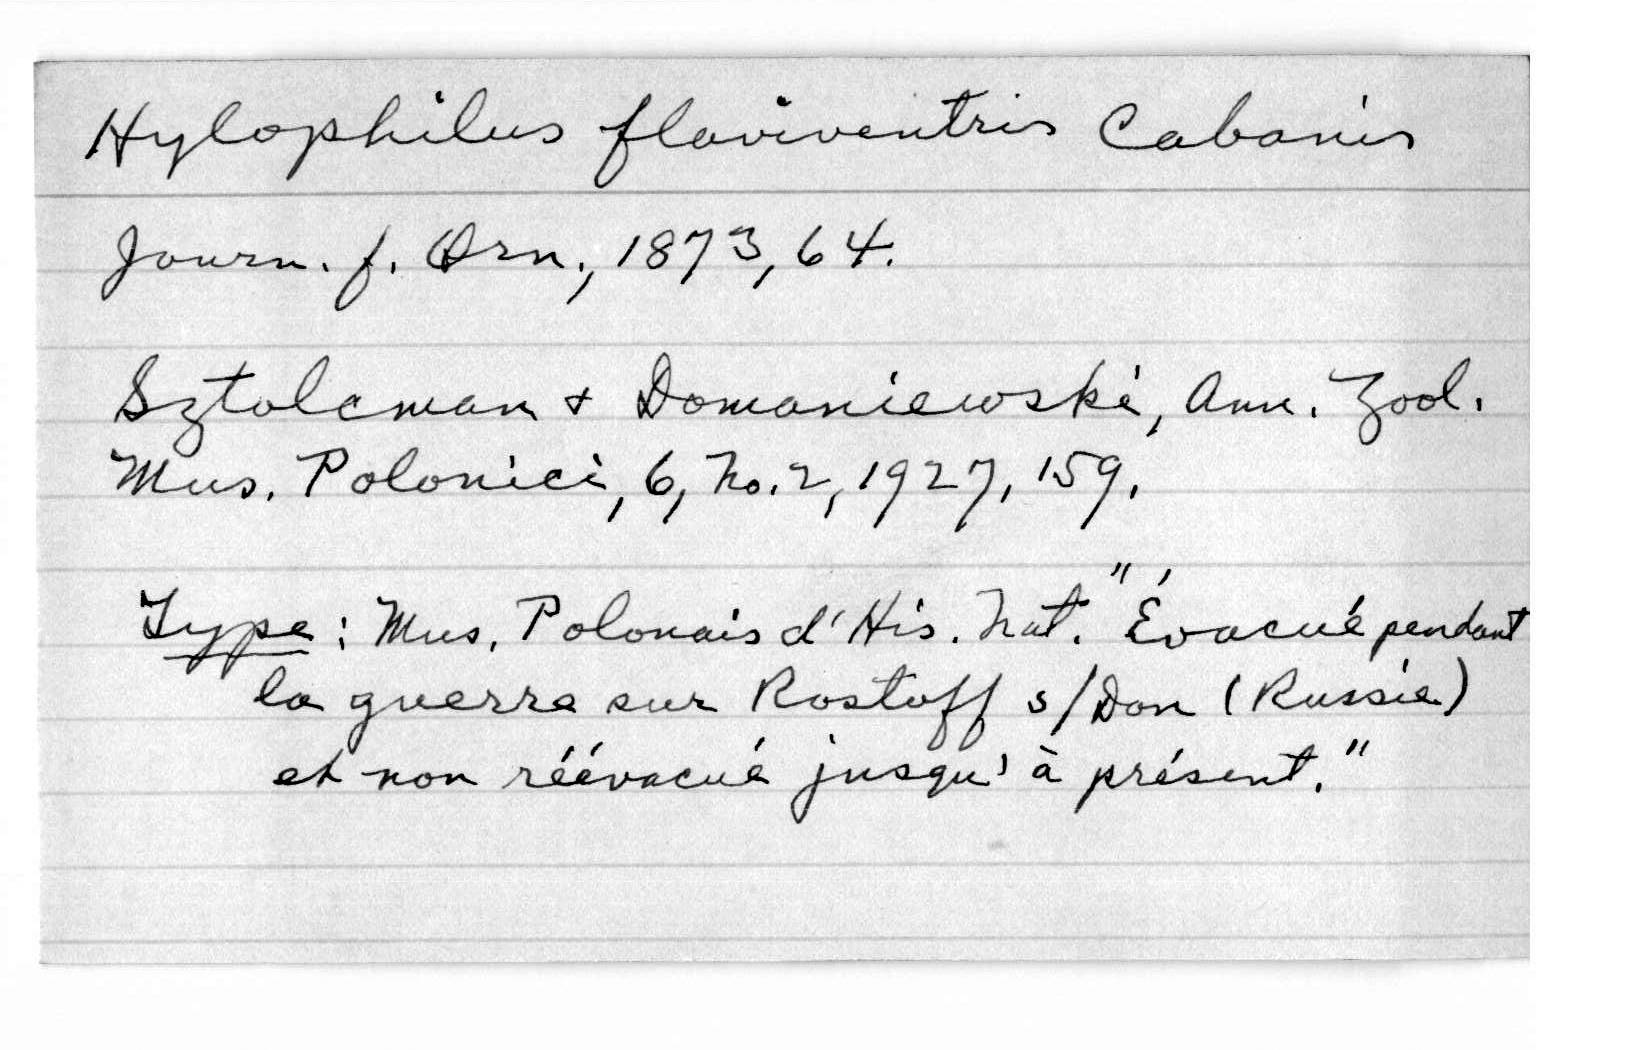 Hylophilus flaviventris Cabanis
Journ. f. Orn., 1873, 64.
Sztolcman & Domaniewski, Ann. Zool.
Mus. Polonici, 6, No. 2, 1927, 159.
Type: Mus. Polonais d'His. Nat. "Évacué pendant
la guerre sur Rostoff s/Don (Russie)
et non réévacué jusqu'à présent."